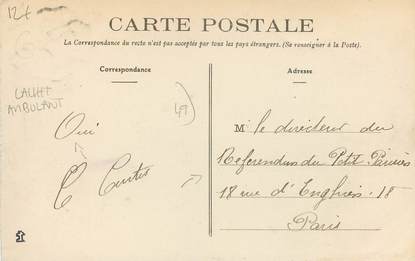 12€
CARTE POSTALE
La Correspondance du recto n'est pas acceptée par tous les pays étrangers. (Se renseigner à la Poste).
Correspondance
Adresse
CACHET
AMBULANT
49
Oui
M le directeur du
Referendum du Petit Parisien
18 rue d'Enghien. 18
Paris